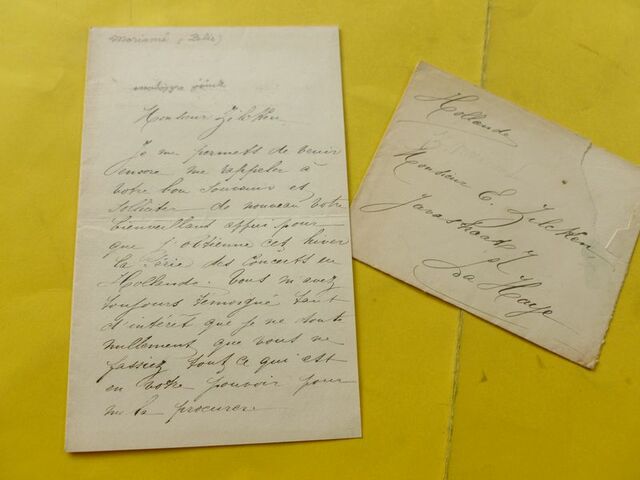 Monsieur Zilcken
Je me permets de venir
encore me rappeler à
votre bon souvenir et
solliciter de nouveau votre
bienveillant appui pour
que j'obtienne cet hiver
la Série des Concerts en
Hollande. Vous m'avez
toujours témoigné tant
d'intérêt que je ne doute
nullement que vous ne
fassiez tout ce qui est
en votre pouvoir pour
me la procurer
Hollande
Monsieur E. Zilcken
La Haye